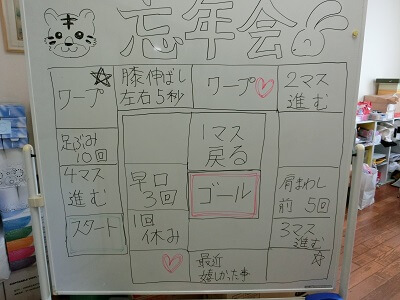 忘年会
ワープ
膝伸ばし
左右5秒
ワープ
2マス
進む
足ぶみ
10回
1マス
戻る
4マス
進む
早口
3回
ゴール
肩まわし
前 5回
スタート
1回
休み
3マス
進む
最近
嬉しかった事